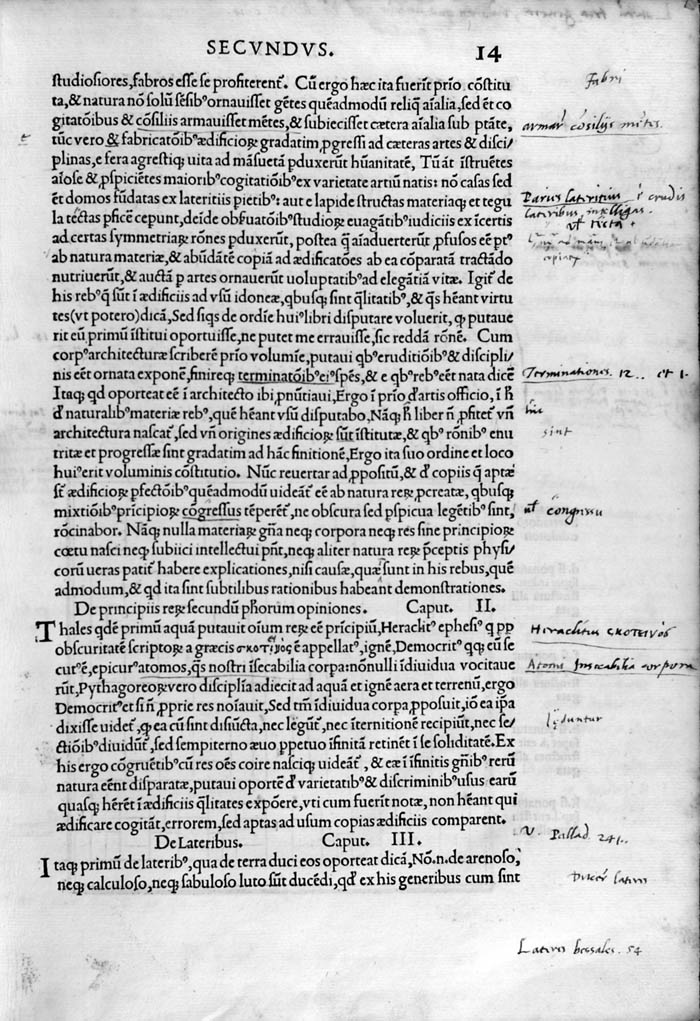 SECVNDVS. 14
studiosiores, fabros esse se profiterent᷑. Cū ergo hæc ita fuerīt prīo cōstitu
ta, & natura nō solū sēsibꝰ ornauisset gētes quēadmodū reliq̄ aīalia, sed ēt co
gitatōibus & cōsiliis armauisset mētes, & subiecisset cætera aīalia sub ptāte,
tūc vero & fabricatōibꝰ ædificioꝝ gradatim ꝓgressi ad cæteras artes & disci/
plinas, e fera agrestiq; uita ad māsuetā ꝑduxerūt hūanitatē, Tū āt īstruētes
aīose & ꝓspiciētes maioribꝰ cogitatiōibꝰ ex varietate artiū natis: nō casas sed
ēt domos fūdatas ex lateritiis pietibꝰ: aut e lapide structas materiaq; et tegu
la tectas ꝑficē cepunt, deīde obſuatōibꝰ studioꝝ euagātibꝰ iudiciis ex īcertis
ad certas symmetriaꝝ rōnes ꝑduxerūt, postea q̄ aīaduerterūt ꝓfusos eē ꝑtꝰ
ab natura materiæ, & abūdātē copiā ad ædificatōes ab ea cōparatā tractādo
nutriuerūt, & auctā ꝑ artes ornauerūt uoluptatibꝰ ad elegātiā vitæ. Igit᷑ de
his rebꝰ q̄ sūt ī ædificiis ad vsū idoneæ, qbusq; sint q̄litatibꝰ, & q̄s hēant virtu
tes (vt potero) dicā, Sed siqs de ordīe huiꝰ libri disputare voluerit, ꝙ putaue
rit eū primū īstitui oportuisse, ne putet me errauisse, sic reddā rōnē. Cum
corpꝰ architecturæ scriberē prīo volumīe, putaui qbꝰ eruditiōibꝰ & discipli/
nis eēt ornata exponē, finireq; terminatōibꝰ eiꝰ spēs, & e qbꝰ rebꝰ eēt nata dicē
Itaq; qd oporteat eē ī architecto ibi ꝓnūtiaui, Ergo ī prīo đ artis officio, ī ħ
đ naturalibꝰ materiæ rebꝰ, quē hēant vsū disputabo, Nāq; ħ liber n̄ ꝓfitet᷑ vn̄
architectura nascat᷑, sed vn̄ origines ædificioꝝ sūt īstitutæ, & qbꝰ rōnibꝰ enu
tritæ et progressæ sint gradatim ad hāc finitionē, Ergo ita suo ordine et loco
huiꝰ erit voluminis cōstitutio. Nūc reuertar ad ꝓpositū, & đ copiis q̄ aptæ
st̄ ædificioꝝ ꝑfectōibꝰ quēadmodū uideāt᷑ eē ab natura reꝝ ꝓcreatæ, qbusq;
mixtiōibꝰ prīcipioꝝ cōgressus tēperēt᷑, ne obscura sed ꝑspicua legētibꝰ sint,
rōcinabor. Nāq; nulla materiaꝝ gn̄a neq; corpora neq; res sine principioꝝ
cœtu nasci neq; subiici intellectui pn̄t, neq; aliter natura reꝝ p̄ceptis physi/
corū ueras patit᷑ habere explicationes, nisi causæ, quæ sunt in his rebus, quē
admodum, & qd ita sint subtilibus rationibus habeant demonstrationes.
De principiis reꝝ secundū phorum opiniones. Caput. II.
Thales qdē primū aquā putauit oīum reꝝ eē prīcipiū, Heraclitꝰ ephesiꝰ q ꝓꝑ
obscuritatē scriptoꝝ a græcis σκοτεινὸς ē appellat᷑, ignē, Democritꝰ qq; eū se
cutꝰ ē, epicurꝰ atomos, q̄s nostri īsecabilia corpa: nōnulli īdiuidua vocitaue
rūt, Pythagoreoꝝ vero disciplīa adiecit ad aquā et ignē aera et terrenū, ergo
Democritꝰ et si n̄ ꝓprie res noīauit, Sed tm̄ īdiuidua corpa ꝓposuit, iō ea īpa
dixisse uidet᷑, ꝙ ea cū sint disiūcta, nec legūt᷑, nec īternitionē recipiūt, nec se/
ctiōibꝰ diuidūt᷑, sed sempiterno æuo ꝑpetuo īfinitā retinēt ī se soliditatē. Ex
his ergo cōgruētibꝰ cū res oēs coire nasciq; uideāt᷑, & eæ ī īfinitis gn̄ibꝰ rerū
natura eēnt disparatæ, putaui oportē đ varietatibꝰ & discriminibꝰ usus earū
quasq; hērēt ī ædificiis q̄litates expōere, vti cum fuerīt notæ, non hēant qui
ædificare cogitāt, errorem, sed aptas ad usum copias ædificiis comparent.
De Lateribus. Caput. III.
Itaq; primū de lateribꝰ, qua de terra duci eos oporteat dicā, Nō .n. de arenoso,
neq; calculoso, neq; sabuloso luto sūt ducēdi, qđ ex his generibus cum sint
Fabri
armar᷑ cōsilijs mētes.
Parius lateritius ī crudis
lateribus intelligas.
ut tecta
Terminationes. 12.. et 1.
sint
ut congressu
Heraclitus σκοτεινὸς
Atomi insecabilia corpora
lęduntur
V. Pallad. 241..
Ducer᷑ lateres
Lateres bessales. 54